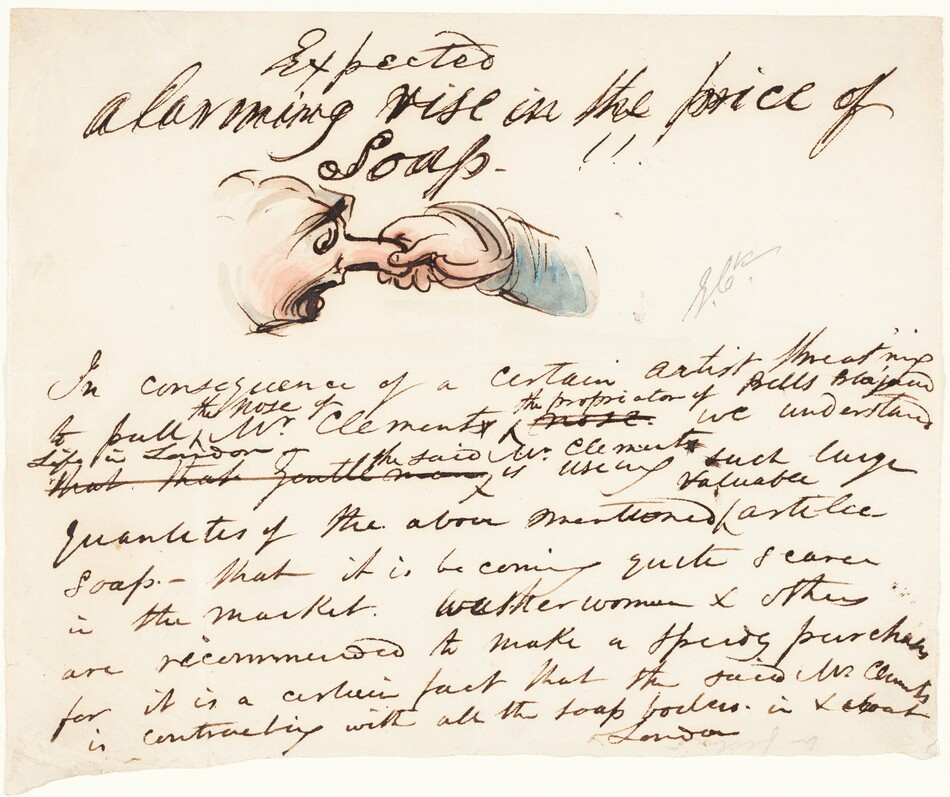 Expected
alarming rise in the price of
Soap - !!!
G.Ck
In consequence of a certain artist threat'nig
to pull the nose of Mr Clements nose. the proprietor of Bells we understand
Life in London - that that gentleman the said Mr Clements is using such large
quantites of the above mentioned valuable article
Soap - that it is becoming quite scarce
in the market. washerwomen & others
are recommended to make a speedy purchase
for it is a certain fact that the said Mr Clements
is contracting with all the soap boilers. in & about
London